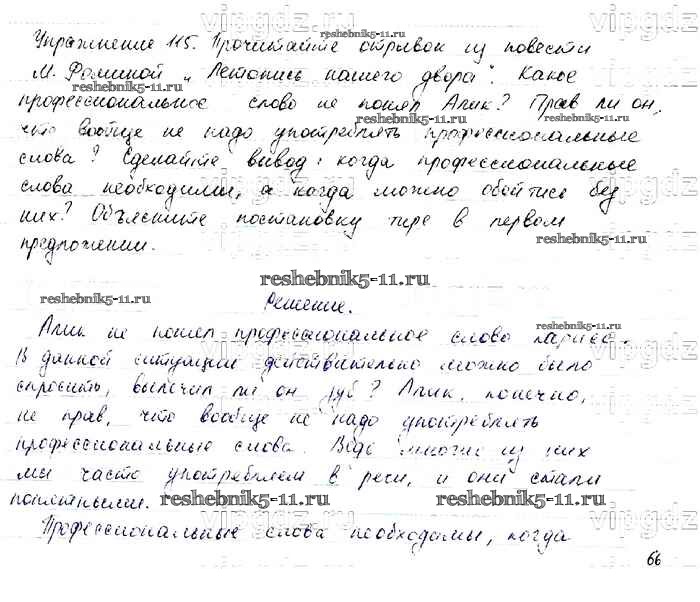 Упражнение 115. Прочитайте отрывок из повести
М. Фоминой „Летопись нашего двора". Какое
reshebnik5-11.ru
reshebnik5-11.ru
профессиональное слово не понял Алик? Прав ли он,
что вообще не надо употреблять профессиональные
слова? Сделайте вывод: когда профессиональные
слова необходимы, а когда можно обойтись без
них? Объясните постановку тире в первом
reshebnik5-11.ru
предложении.
reshebnik5-11.ru
reshebnik5-11.ru
Решение.
reshebnik5-11.ru
Алик не понял профессиональное слово кариес.
В данной ситуации действительно можно было
спросить, вылечил ли он зуб? Алик, конечно,
не прав, что вообще не надо употреблять
профессиональные слова. Ведь многие из них
мы часто употребляем в речи, и они стали
понятными.
reshebnik5-11.ru
reshebnik5-11.ru
Профессиональные слова необходимы, когда
66
vipgdz
vipgdz
vipgdz
vipgdz
vipgdz
vipgdz